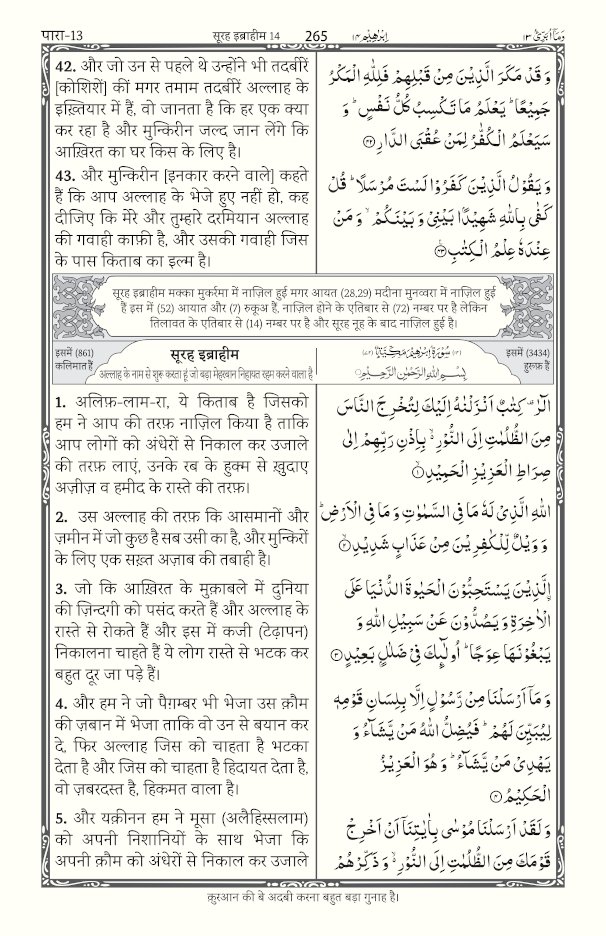 पारा-13 सूरह इब्राहीम 14 265 اِبْرٰهِيْم ١٤ وَمَآ اُبَرِّئُ ١٣
42. और जो उन से पहले थे उन्होंने भी तदबीरें
[कोशिशें] कीं मगर तमाम तदबीरें अल्लाह के
इख़्तियार में हैं, वो जानता है कि हर एक क्या
कर रहा है और मुन्किरीन जल्द जान लेंगे कि
आख़िरत का घर किस के लिए है।
وَ قَدْ مَكَرَ الَّذِيْنَ مِنْ قَبْلِهِمْ فَلِلّٰهِ الْمَكْرُ
جَمِيْعًا ؕ يَعْلَمُ مَا تَكْسِبُ كُلُّ نَفْسٍ ؕ وَ
سَيَعْلَمُ الْكُفّٰرُ لِمَنْ عُقْبَى الدَّارِ ۝٤٢
43. और मुन्किरीन [इनकार करने वाले] कहते
हैं कि आप अल्लाह के भेजे हुए नहीं हो, कह
दीजिए कि मेरे और तुम्हारे दरमियान अल्लाह
की गवाही काफ़ी है, और उसकी गवाही जिस
के पास किताब का इल्म है।
وَ يَقُوْلُ الَّذِيْنَ كَفَرُوْا لَسْتَ مُرْسَلًا ؕ قُلْ
كَفٰى بِاللّٰهِ شَهِيْدًۢا بَيْنِيْ وَ بَيْنَكُمْ ۙ وَ مَنْ
عِنْدَهٗ عِلْمُ الْكِتٰبِ ۝٤٣
सूरह इब्राहीम मक्का मुकर्रमा में नाज़िल हुई मगर आयत (28,29) मदीना मुनव्वरा में नाज़िल हुई
हैं इस में (52) आयात और (7) रुकूअ हैं, नाज़िल होने के एतिबार से (72) नम्बर पर है लेकिन
तिलावत के एतिबार से (14) नम्बर पर है और सूरह नूह के बाद नाज़िल हुई है।
इसमें (861) सूरह इब्राहीम سُوْرَةُ اِبْرٰهِيْمَ مَكِّيَّةٌ इसमें (3434)
कलिमात हैं अल्लाह के नाम से शुरू करता हूं जो बड़ा मेहरबान निहायत रहम करने वाला है بِسْمِ اللّٰهِ الرَّحْمٰنِ الرَّحِيْمِ हुरूफ़ हैं
1. अलिफ़-लाम-रा, ये किताब है जिसको
हम ने आप की तरफ़ नाज़िल किया है ताकि
आप लोगों को अंधेरों से निकाल कर उजाले
की तरफ़ लाएं, उनके रब के हुक्म से ख़ुदाए
अज़ीज़ व हमीद के रास्ते की तरफ़।
الٓرٰ ۫ كِتٰبٌ اَنْزَلْنٰهُ اِلَيْكَ لِتُخْرِجَ النَّاسَ
مِنَ الظُّلُمٰتِ اِلَى النُّوْرِ ۙ بِاِذْنِ رَبِّهِمْ اِلٰى
صِرَاطِ الْعَزِيْزِ الْحَمِيْدِ ۝١
2. उस अल्लाह की तरफ़ कि आसमानों और
ज़मीन में जो कुछ है सब उसी का है, और मुन्किरों
के लिए एक सख़्त अज़ाब की तबाही है।
اللّٰهِ الَّذِيْ لَهٗ مَا فِي السَّمٰوٰتِ وَ مَا فِي الْاَرْضِ ؕ
وَ وَيْلٌ لِّلْكٰفِرِيْنَ مِنْ عَذَابٍ شَدِيْدِ ۝٢
3. जो कि आख़िरत के मुक़ाबले में दुनिया
की ज़िन्दगी को पसंद करते हैं और अल्लाह के
रास्ते से रोकते हैं और इस में कजी (टेढ़ापन)
निकालना चाहते हैं ये लोग रास्ते से भटक कर
बहुत दूर जा पड़े हैं।
اِلَّذِيْنَ يَسْتَحِبُّوْنَ الْحَيٰوةَ الدُّنْيَا عَلَى
الْاٰخِرَةِ وَ يَصُدُّوْنَ عَنْ سَبِيْلِ اللّٰهِ وَ
يَبْغُوْنَهَا عِوَجًا ؕ اُولٰٓئِكَ فِيْ ضَلٰلٍۭ بَعِيْدٍ ۝٣
4. और हम ने जो पैग़म्बर भी भेजा उस क़ौम
की ज़बान में भेजा ताकि वो उन से बयान कर
दे, फिर अल्लाह जिस को चाहता है भटका
देता है और जिस को चाहता है हिदायत देता है,
वो ज़बरदस्त है, हिकमत वाला है।
وَ مَاۤ اَرْسَلْنَا مِنْ رَّسُوْلٍ اِلَّا بِلِسَانِ قَوْمِهٖ
لِيُبَيِّنَ لَهُمْ ؕ فَيُضِلُّ اللّٰهُ مَنْ يَّشَآءُ وَ
يَهْدِيْ مَنْ يَّشَآءُ ؕ وَ هُوَ الْعَزِيْزُ
الْحَكِيْمُ ۝٤
5. और यक़ीनन हम ने मूसा (अलैहिस्सलाम)
को अपनी निशानियों के साथ भेजा कि
अपनी क़ौम को अंधेरों से निकाल कर उजाले
وَ لَقَدْ اَرْسَلْنَا مُوْسٰى بِاٰيٰتِنَاۤ اَنْ اَخْرِجْ
قَوْمَكَ مِنَ الظُّلُمٰتِ اِلَى النُّوْرِ ۙ وَ ذَكِّرْهُمْ
क़ुरआन की बे अदबी करना बहुत बड़ा गुनाह है।